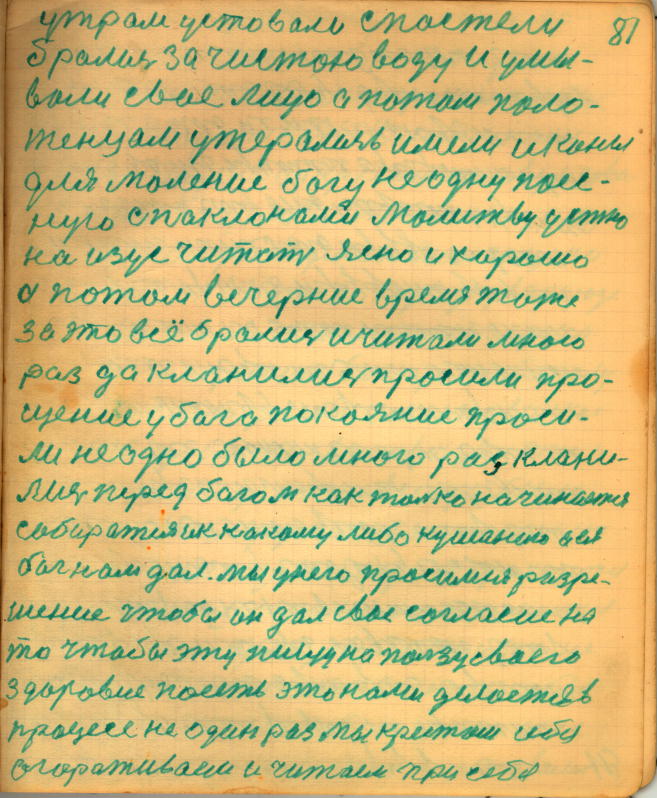 81
утрам уставали спастели
бралися за чистою воду и умы-
вали свое лицо а потом поло-
тенцам утералися в имели иконы
для моление богу не одну поес-
ную с паклонами Молитву устно
на изус читать ясно и хорошо
а потом вечерние время тоже
за это всё брались и читали много
раз да кланились просили про-
щение у бога покояние проси-
ли не одно было много раз клани-
лись перед богом как только начинается
собиратся к какому либо кушанию
бог нам дал. мы у него просимся разре-
шение чтобы он дал свое согласие на
то чтобы эту пищу на ползу своего
здоровие поесть это нами делается в
процесе не один раз мы крестом себя
огораживаем и читаем при себя